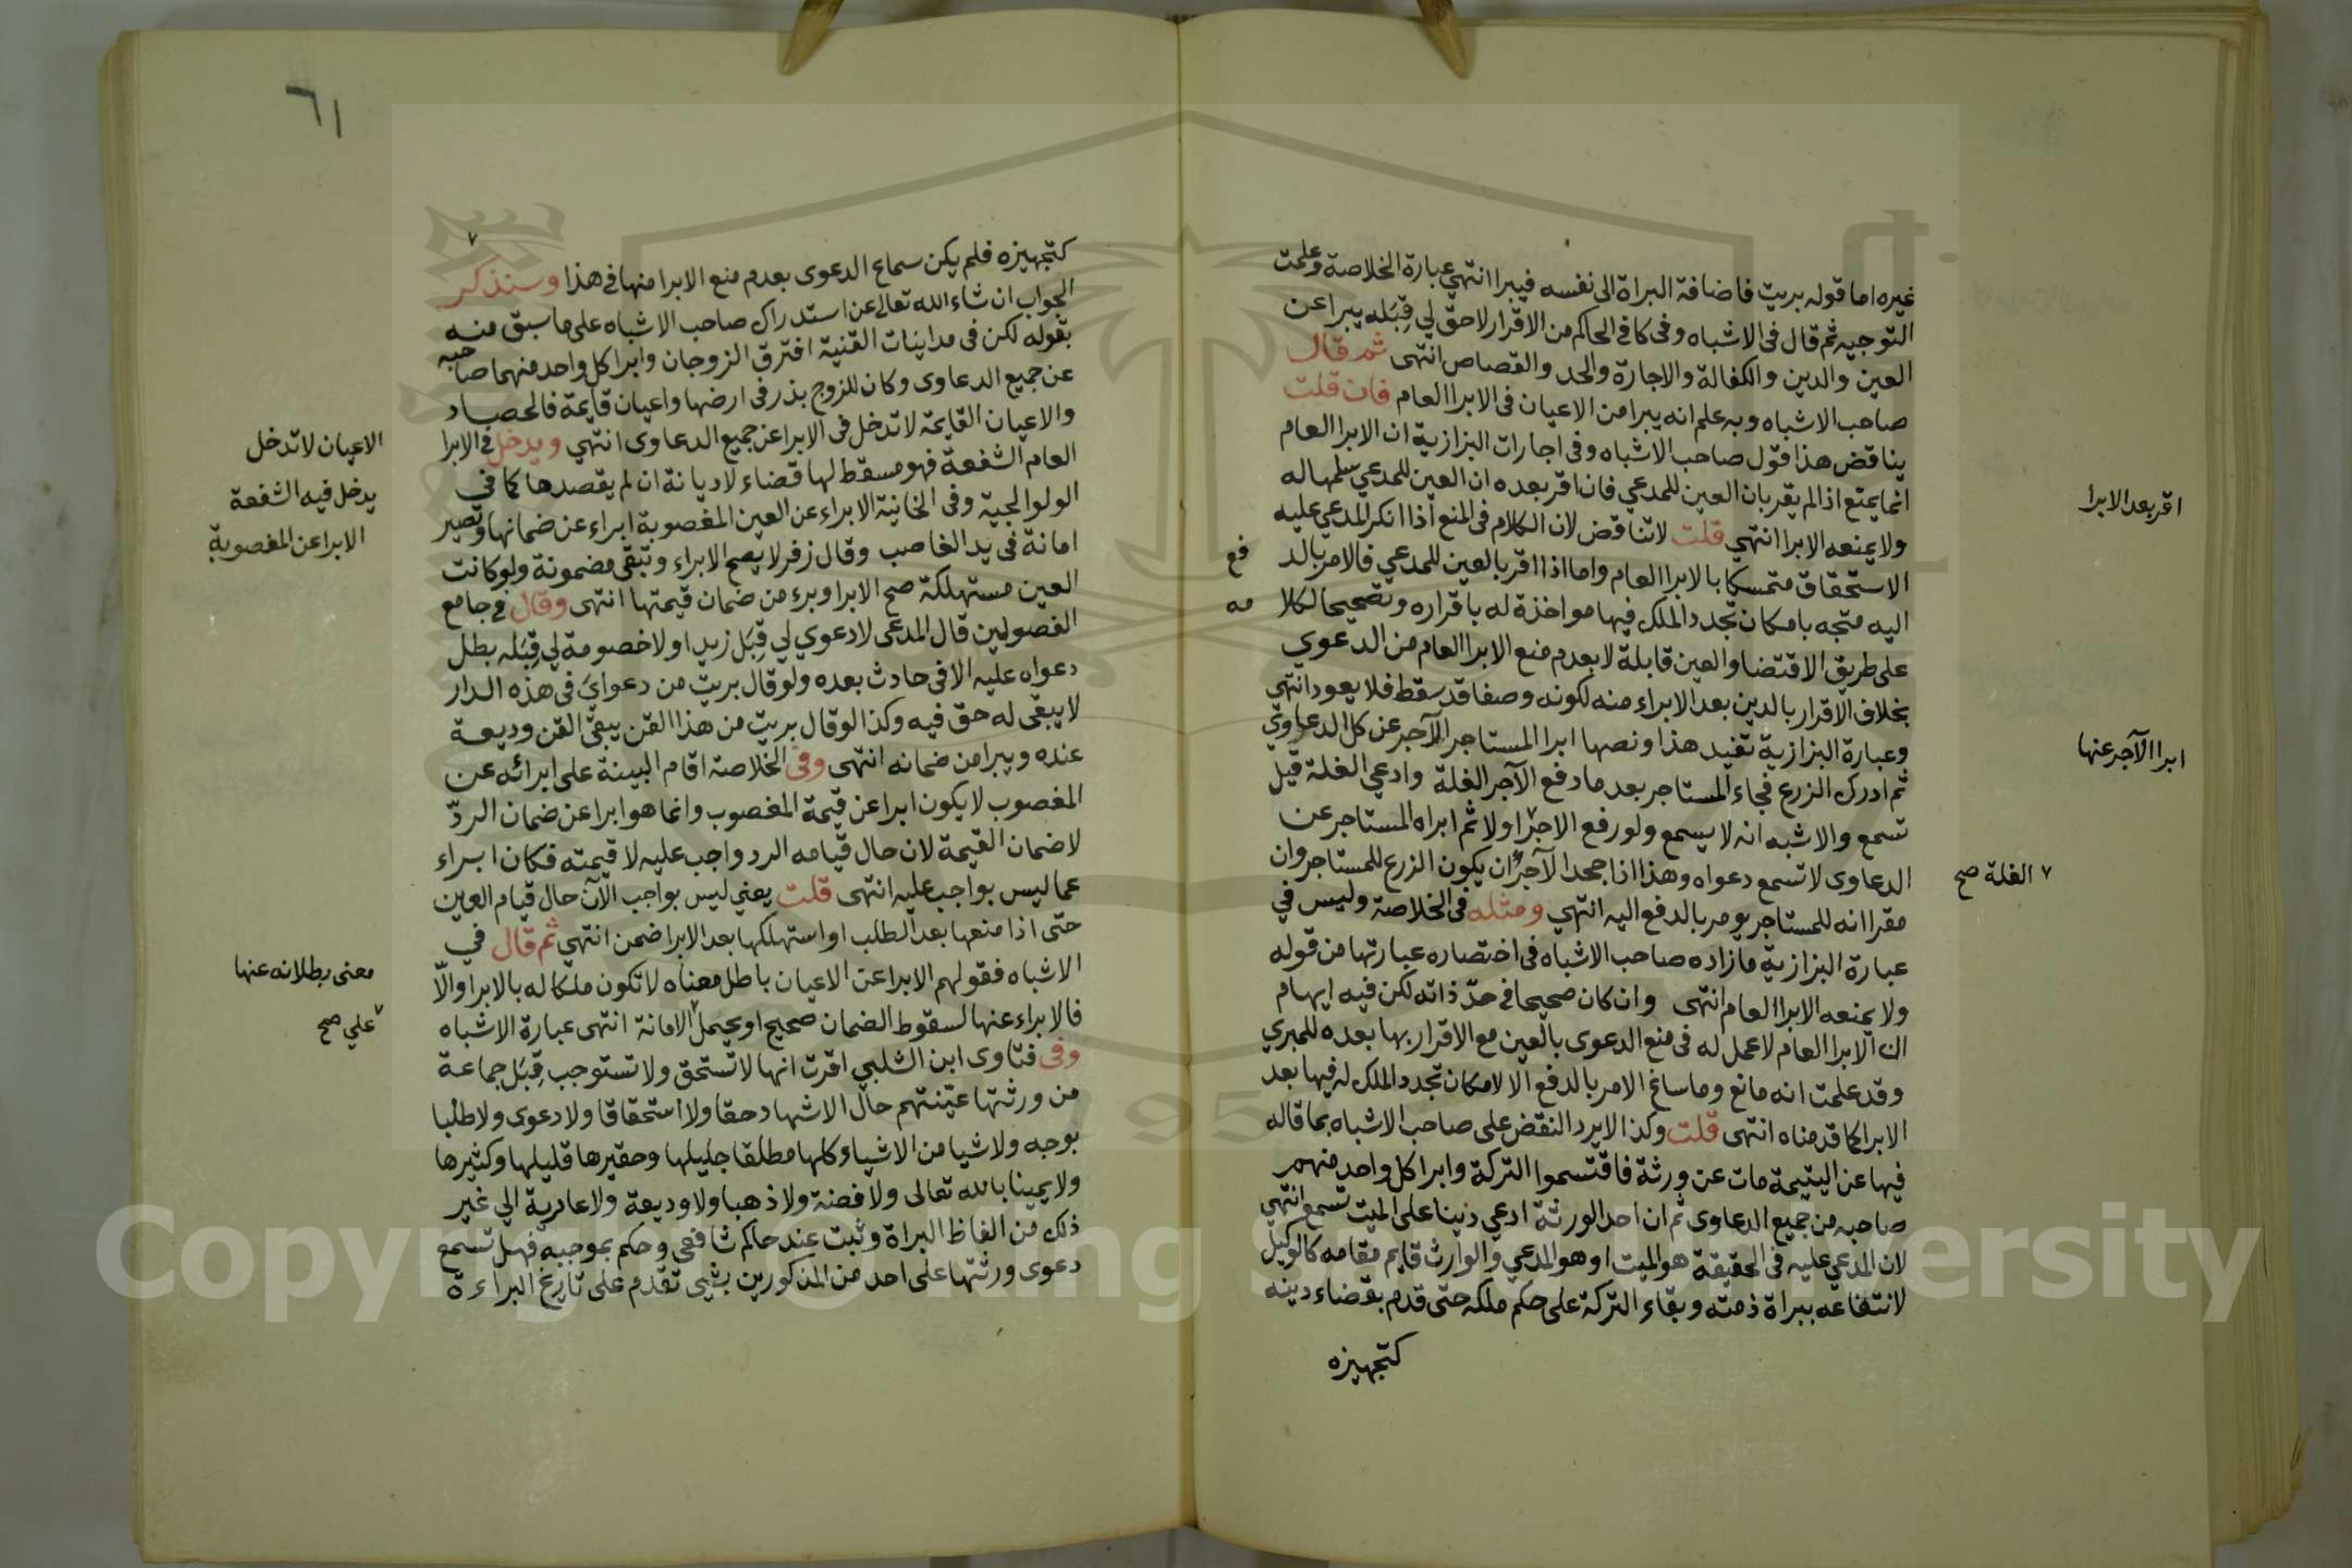 غيره اما قوله بريت فاضافة البراة الى نفسه فيبرا انتهى عبارة الخلاصة وعلمت
التوجيه ثم قال فى الاشباه وفى كافى الحاكم من الاقرار لاحق لي قِبَله يبرا عن
العين والدين والكفالة والاجارة والحد والقصاص انتهى ثم قال
صاحب الاشباه وبه علم انه يبرا من الاعيان فى الابرا العام فان قلت
يناقض هذا قول صاحب الاشباه وفى اجارات البزازية ان الابرا العام
انما يمنع اذا لم يقر بان العين للمدعي فان اقر بعده ان العين للمدعي سلمها له
ولا يمنعه الابرا انتهى قلت لا تناقض لان الكلام فى المنع اذا انكر المدعي عليه
الاستحقاق متمسكا بالابرا العام واما اذا اقر بالعين للمدعي فالامر بالد فع
اليه متجه بامكان تجدد الملك فيها مواخذة له باقراره وتصحيحا لكلا مه
على طريق الاقتضا والعين قابلة لا بعدم منع الابرا العام من الدعوي
بخلاف الاقرار بالدين بعد الابراء منه لكونه وصفا قد سقط فلا يعود انتهى
وعبارة البزازية تفيد هذا ونصها ابرا المستاجر الآجر عن كل الدعاوي
ثم ادرك الزرع فجاء المستاجر بعد ما دفع الآجر الغلة وادعي الغلة قيل
تسمع والاشبه انه لا يسمع ولو رفع الاجر ٧ اولا ثم ابراه المستاجر عن
الدعاوى لا تسمع دعواه وهذا اذا جحد الآجر ان يكون الزرع للمستاجر وان
مقرا انه للمستاجر يومر بالدفع اليه انتهي ومثله فى الخلاصة وليس في
عبارة البزازية ما زاده صاحب الاشباه فى اختصاره عبارتها من قوله
ولا يمنعه الابرا العام انتهى وان كان صحيحا فى حدّ ذاته لكن فيه ايهام
ان الابرا العام لا عمل له فى منع الدعوى بالعين مع الاقرار بها بعده للمبري
وقد علمت انه مانع وما ساغ الامر بالدفع الا لامكان تجدد الملك له فيها بعد
الابرا كما قدمناه انتهى قلت وكذا لا يرد النقض على صاحب الاشباه بما قاله
فيها عن اليتيمة مات عن ورثة فاقتسموا التركة وابرا كل واحد منهم
صاحبه من جميع الدعاوى ثم ان احد الورثة ادعي دينا على الميت تسمع انتهي
لان المدعي عليه فى الحقيقة هو الميت او هو المدعي والوارث قايم مقامه كالوكيل
لانتفاعه ببراة ذمته وبقاء التركة على حكم ملكه حتى قدم بقضاء دينه
كتجهيزه
اقر بعد الابرا
ابرا الآجر عنها
٧ الغلة صح
٦١
كتجهيزه فلم يكن سماع الدعوى بعدم منع الابرا منها فى هذا وسنذكر
الجواب ان شاء الله تعالى عن استدراك صاحب الاشباه على ما سبق منه
بقوله لكن فى مداينات القنية افترق الزوجان وابرا كل واحد منهما صاحبه
عن جميع الدعاوى وكان للزوج بذر فى ارضها واعيان قايمة فالحصاد
والاعيان القايمة لا تدخل فى الابرا عن جميع الدعاوى انتهي ويدخل فى الابرا
العام الشفعة فهو مسقط لها قضاء لا ديانة ان لم يقصدها كما في
الولوالجية وفى الخانية الابراء عن العين المغصوبة ابراء عن ضمانها وتصير
امانة فى يد الغاصب وقال زفر لا يصح الابراء وتبقى مضمونة ولو كانت
العين مستهلكة صح الابرا وبرء من ضمان قيمتها انتهى وقال فى جامع
الفصولين قال المدعى لا دعوي لي قِبَل زيد او لا خصومة لي قِبَله بطل
دعواه عليه الا فى حادث بعده ولو قال بريت من دعواي فى هذه الدار
لا يبقى له حق فيه وكذا لو قال بريت من هذا القن يبقى القن وديعة
عنده ويبرا من ضمانه انتهى وفى الخلاصة اقام البينة على ابرائه عن
المغصوب لا يكون ابرا عن قيمة المغصوب وانما هو ابرا عن ضمان الردّ
لا ضمان القيمة لان حال قيامه الرد واجب عليه لا قيمته فكان ابراء
عما ليس بواجب عليه انتهى قلت يعني ليس بواجب الآن حال قيام العين
حتى اذا منعها بعد الطلب او استهلكها بعد الابرا ضمن انتهى ثم قال في
الاشباه فقولهم الابرا عن الاعيان باطل معناه لا تكون ملكا له بالابرا والّا
فالابراء عنها لسقوط الضمان صحيح او يحمل ٧ الامانة انتهى عبارة الاشباه
وفى فتاوى ابن الشلبي اقرت انها لا تستحق ولا تستوجب قِبَل جماعة
من ورثتها عيّنتهم حال الاشهاد حقا ولا استحقاقا ولا دعوى ولا طلبا
بوجه ولا شيا من الاشياء كلها مطلقا جليلها وحقيرها قليلها وكثيرها
ولا يمينا بالله تعالى ولا فضة ولا ذهبا ولا وديعة ولا عارية الي غير
ذلك من الفاظ البراة وثبت عند حاكم شافعى وحكم بموجبه فهل تسمع
دعوى ورثتها على احد من المذكورين بشيى تقدم على تاريخ البراءة
الاعيان لا تدخل
يدخل فيه الشفعة
الابرا عن المغصوبة
معنى بطلانه عنها
٧ علي صح
Copyright © King Saud University
1957